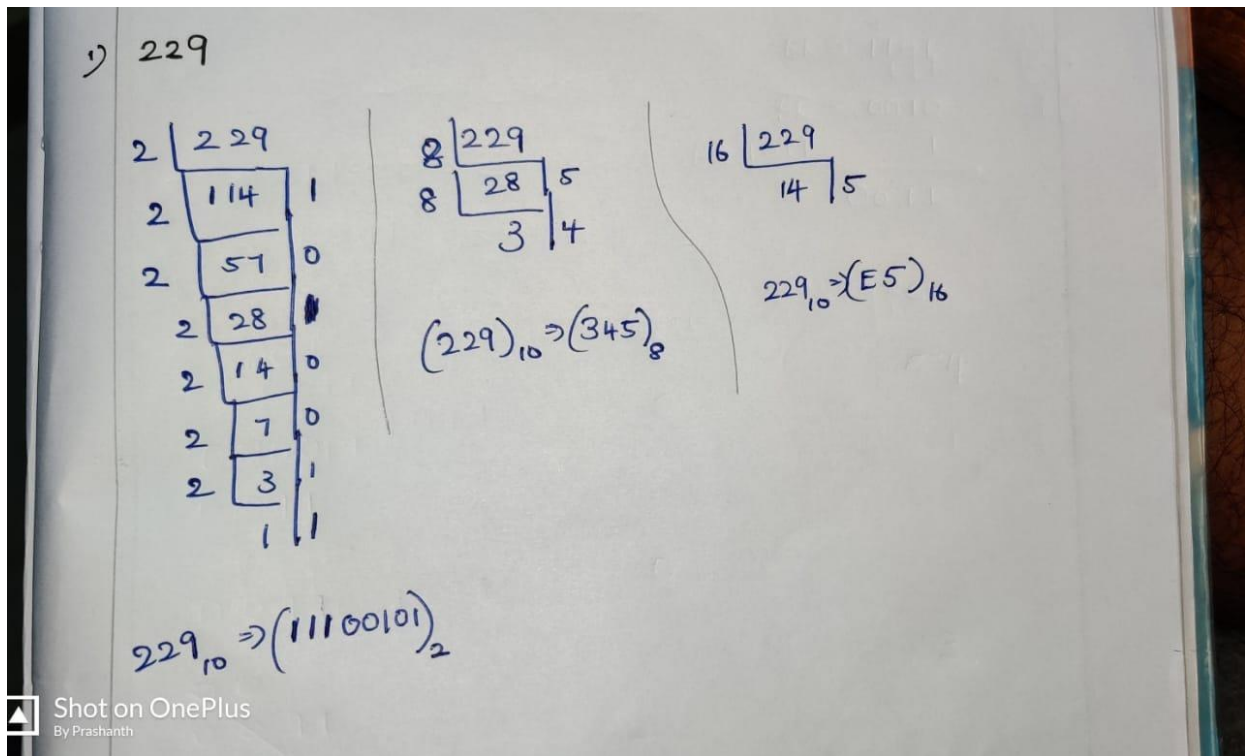 1) 229
2 229
2 114 1
2 57 0
2 28 1
2 14 0
2 7 0
2 3 1
1 1
229₁₀ ⇒ (11100101)₂
8 229
8 28 5
3 4
(229)₁₀ ⇒ (345)₈
16 229
14 5
229₁₀ ⇒ (E5)₁₆
Shot on OnePlus
By Prashanth